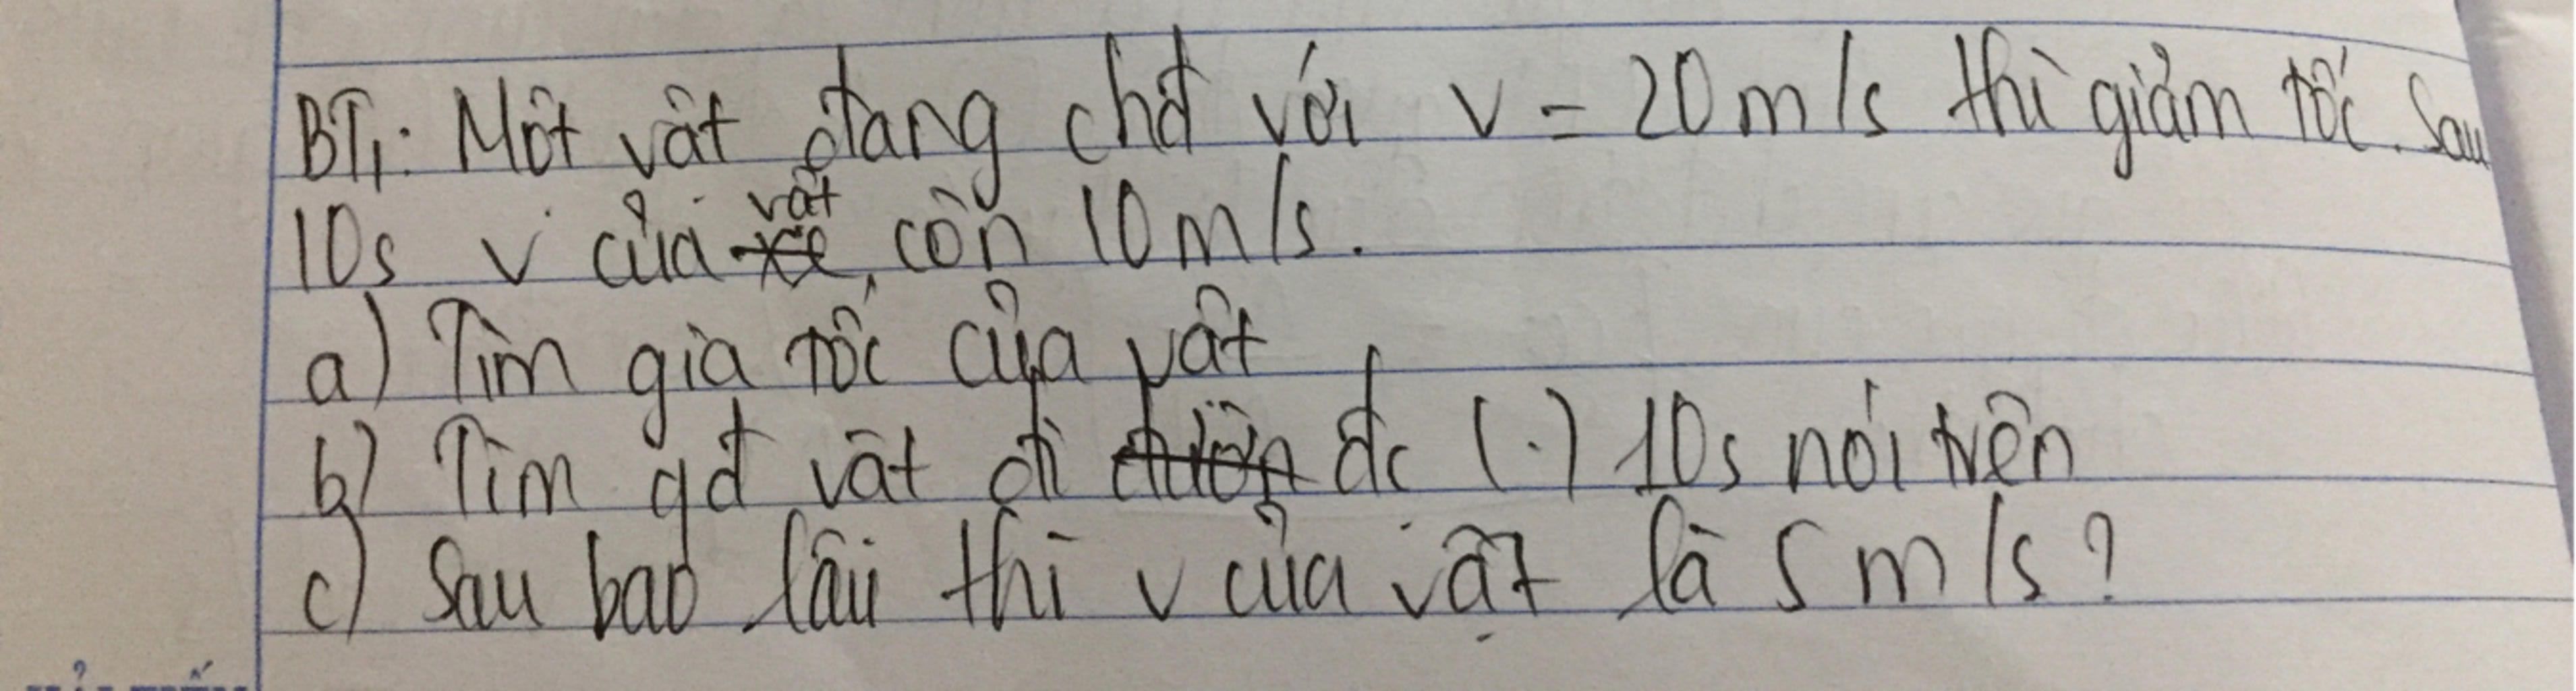 BT₁: Một vật đang chđ với v = 20 m/s thì giảm tốc. Sau
10s v của vật còn 10 m/s.
a) Tìm gia tốc của vật
b) Tìm qđ vật đi đc (.) 10s nói trên
c) Sau bao lâu thì v của vật là 5 m/s?